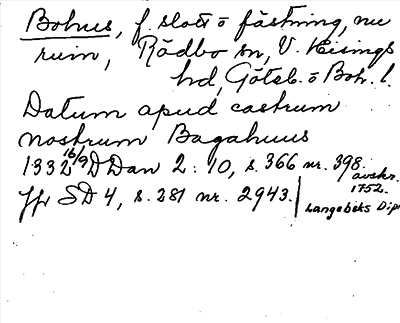 Bohus, f. slott o fästning, nu
ruin, Rödbo sn, V. Hisings
hd, Göteb. o Boh. l.
Datum apud castrum
nostrum Bagahuus
1332 16/9 DDan 2:10, s. 366 nr. 398.
avskr. 1752.
Jfr SD 4, s. 281 nr. 2943.
Langebeks Dipl